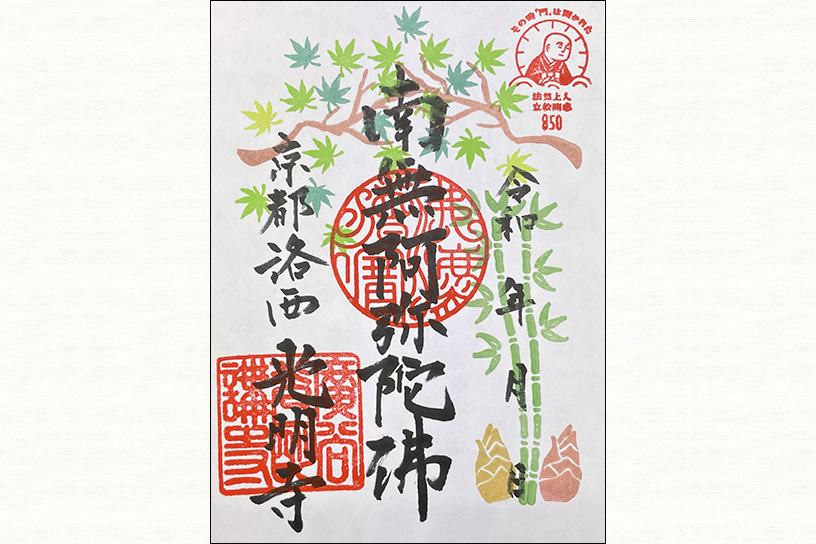 その時「門」は開かれた
法然上人
立教開宗
850
令和 年 月 日
南無阿弥陀佛
京都洛西
光明寺